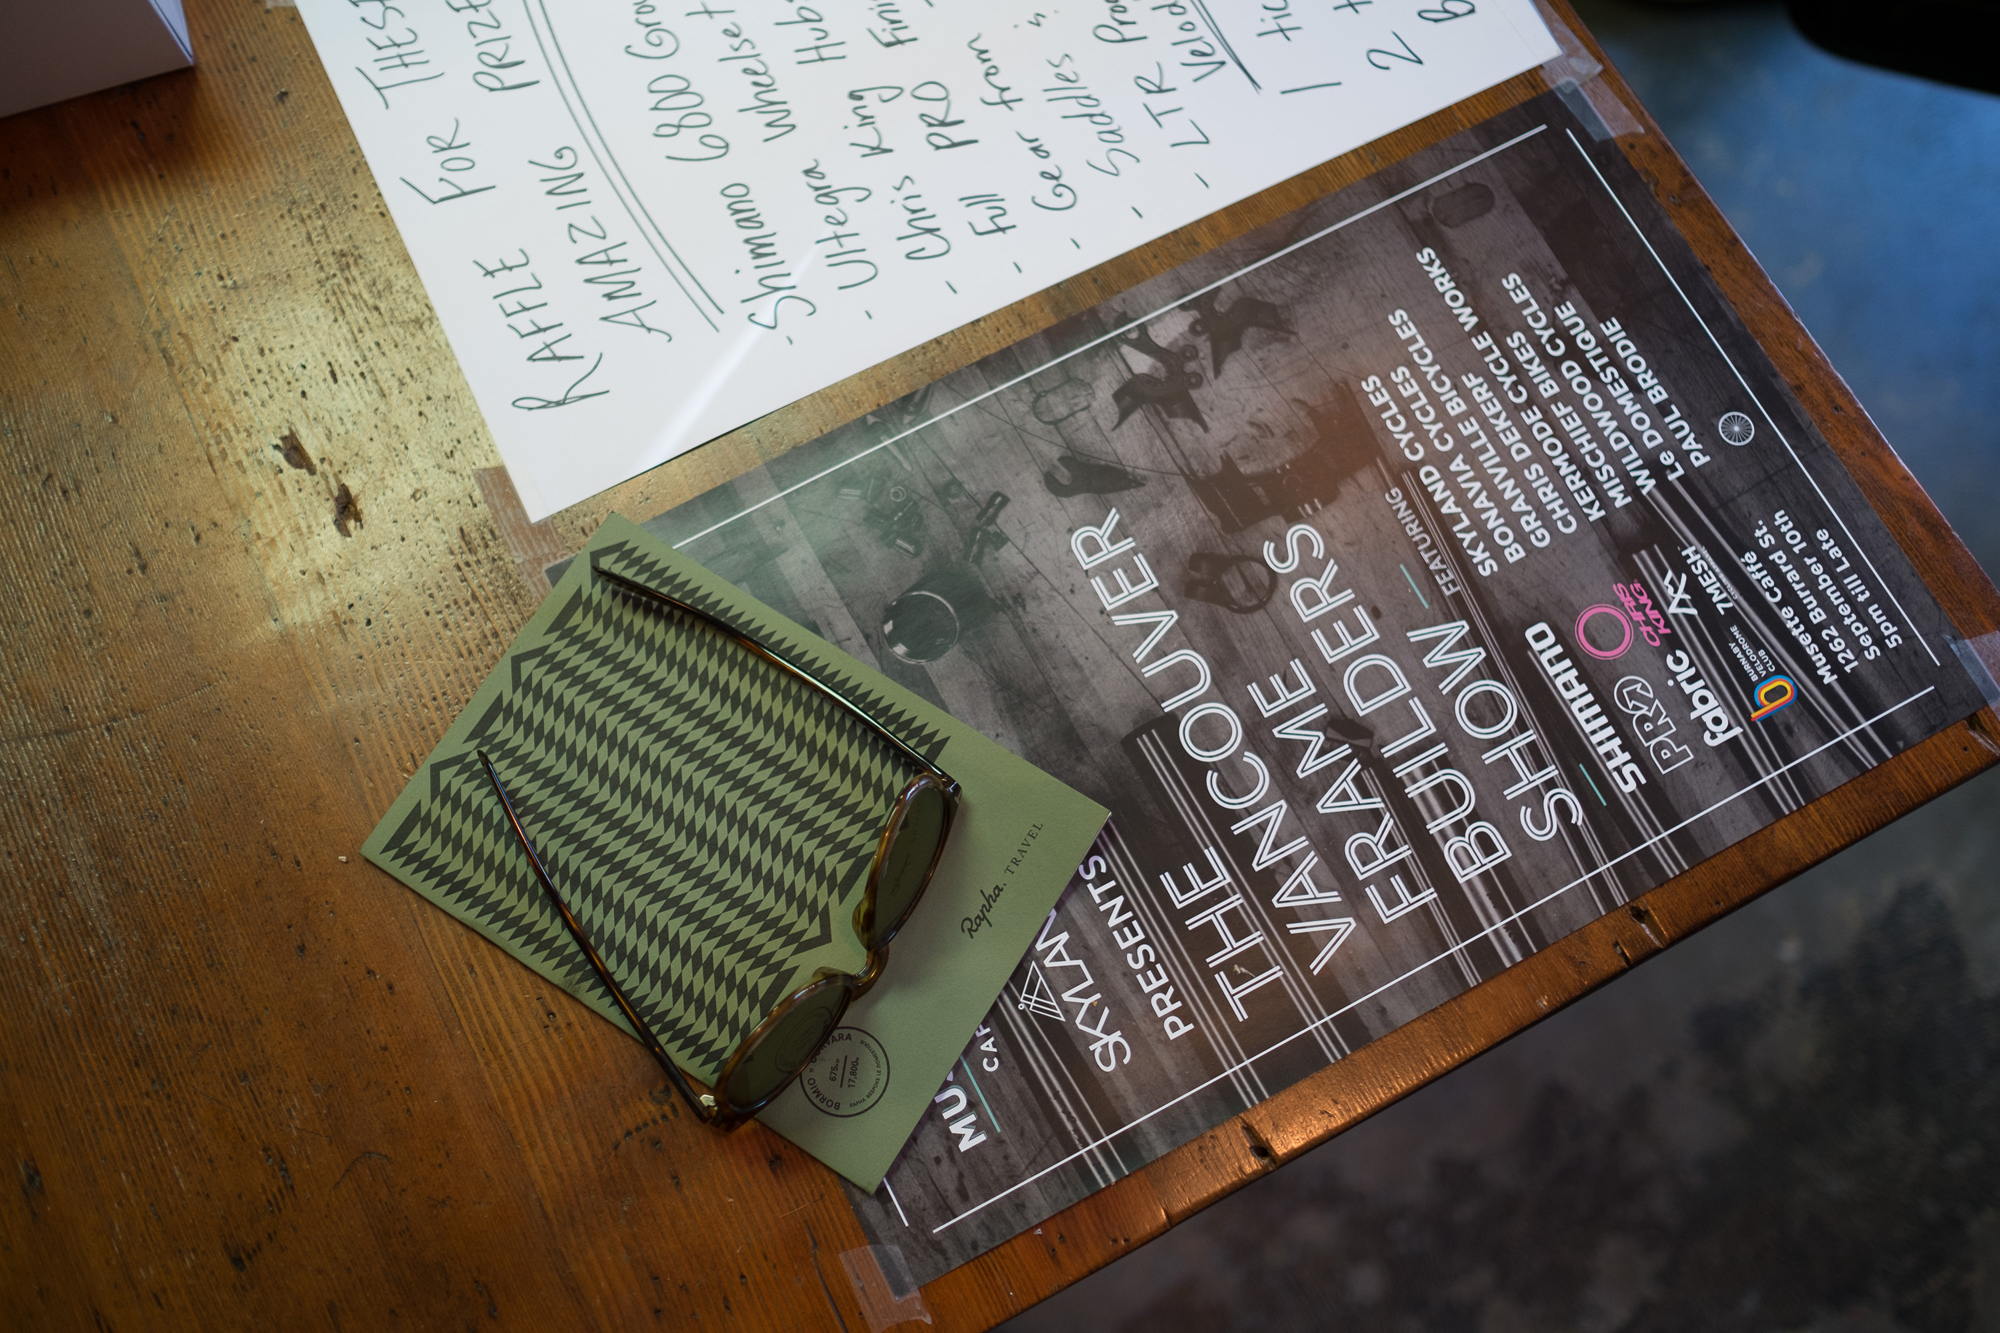 RAFFLE FOR THESE
AMAZING PRIZE
- Shimano 6800 Grou
- Ultegra Wheelset
- Chris King Hubs
- Full PRO Fini
- Gear from
- Saddles
- LTR
Velod
1 tic
2
MU
CAF
SKYLAN
PRESENTS
THE
VANCOUVER
FRAME
BUILDERS
SHOW
FEATURING
SKYLAND CYCLES
BONAVIA CYCLES
GRANVILLE BICYCLES
CHRIS DEKERF
KERMODE CYCLE WORKS
MISCHIEF BIKES
WILDWOOD CYCLES
Le DOMESTIQUE
PAUL BRODIE
SHIMANO
CHRIS
KING
PRO
fabric
7MESH
BURNABY
VELODROME
CLUB
Musette Caffé
1262 Burrard St.
September 10th
5pm till Late
Rapha. TRAVEL
BORMIO
675
17,800